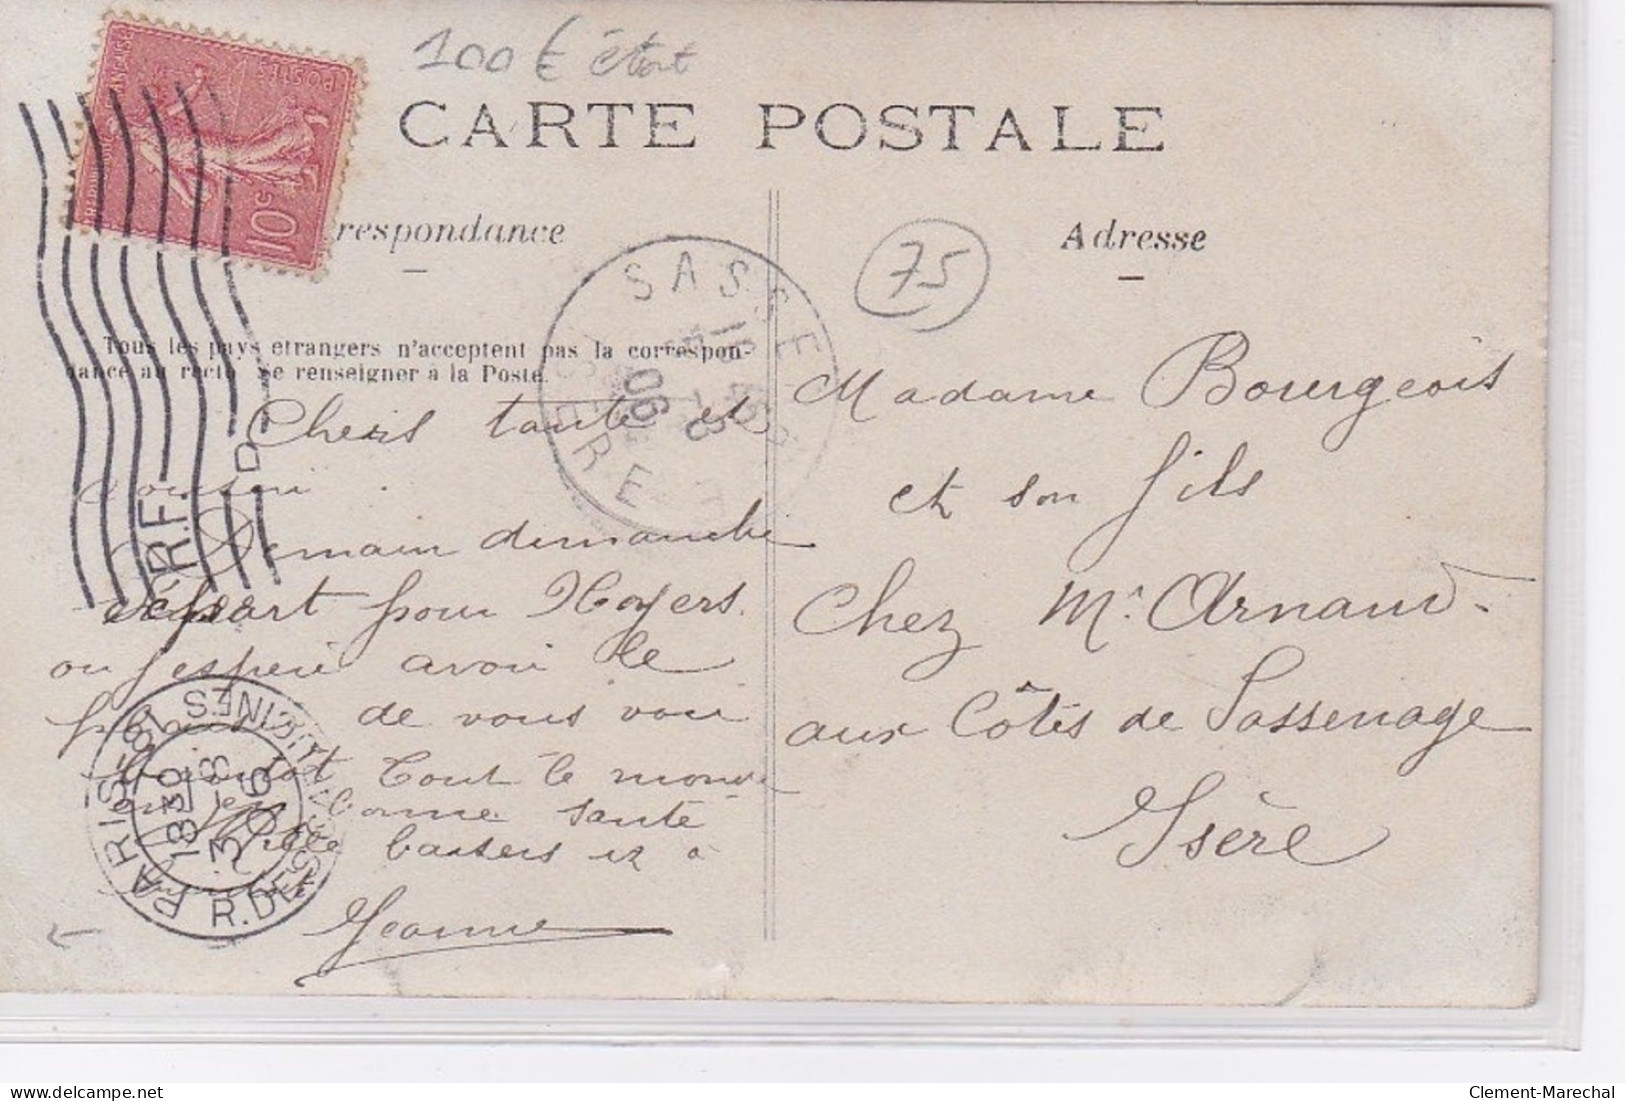 100€ état
CARTE POSTALE
POSTES
10c
respondance
Adresse
75
SASSENAGE
ISERE
06
Tous les pays etrangers n'acceptent pas la correspon-
dance au recto Se renseigner à la Poste.
Chers tante et
cousin.
Demain dimanche
départ pour Noyers.
ou j'espère avoir le
plaisir de vous voir
bientot Tout le monde
bonne santé
Mille baisers et à
Jeanne
R.F
PARIS
18 30
3 - 8
R. DES
Madame Bourgeois
et son fils
Chez Mr. Arnaud.
aux Côtes de Sassenage
Isère
delcampe.net
Clement-Marechal